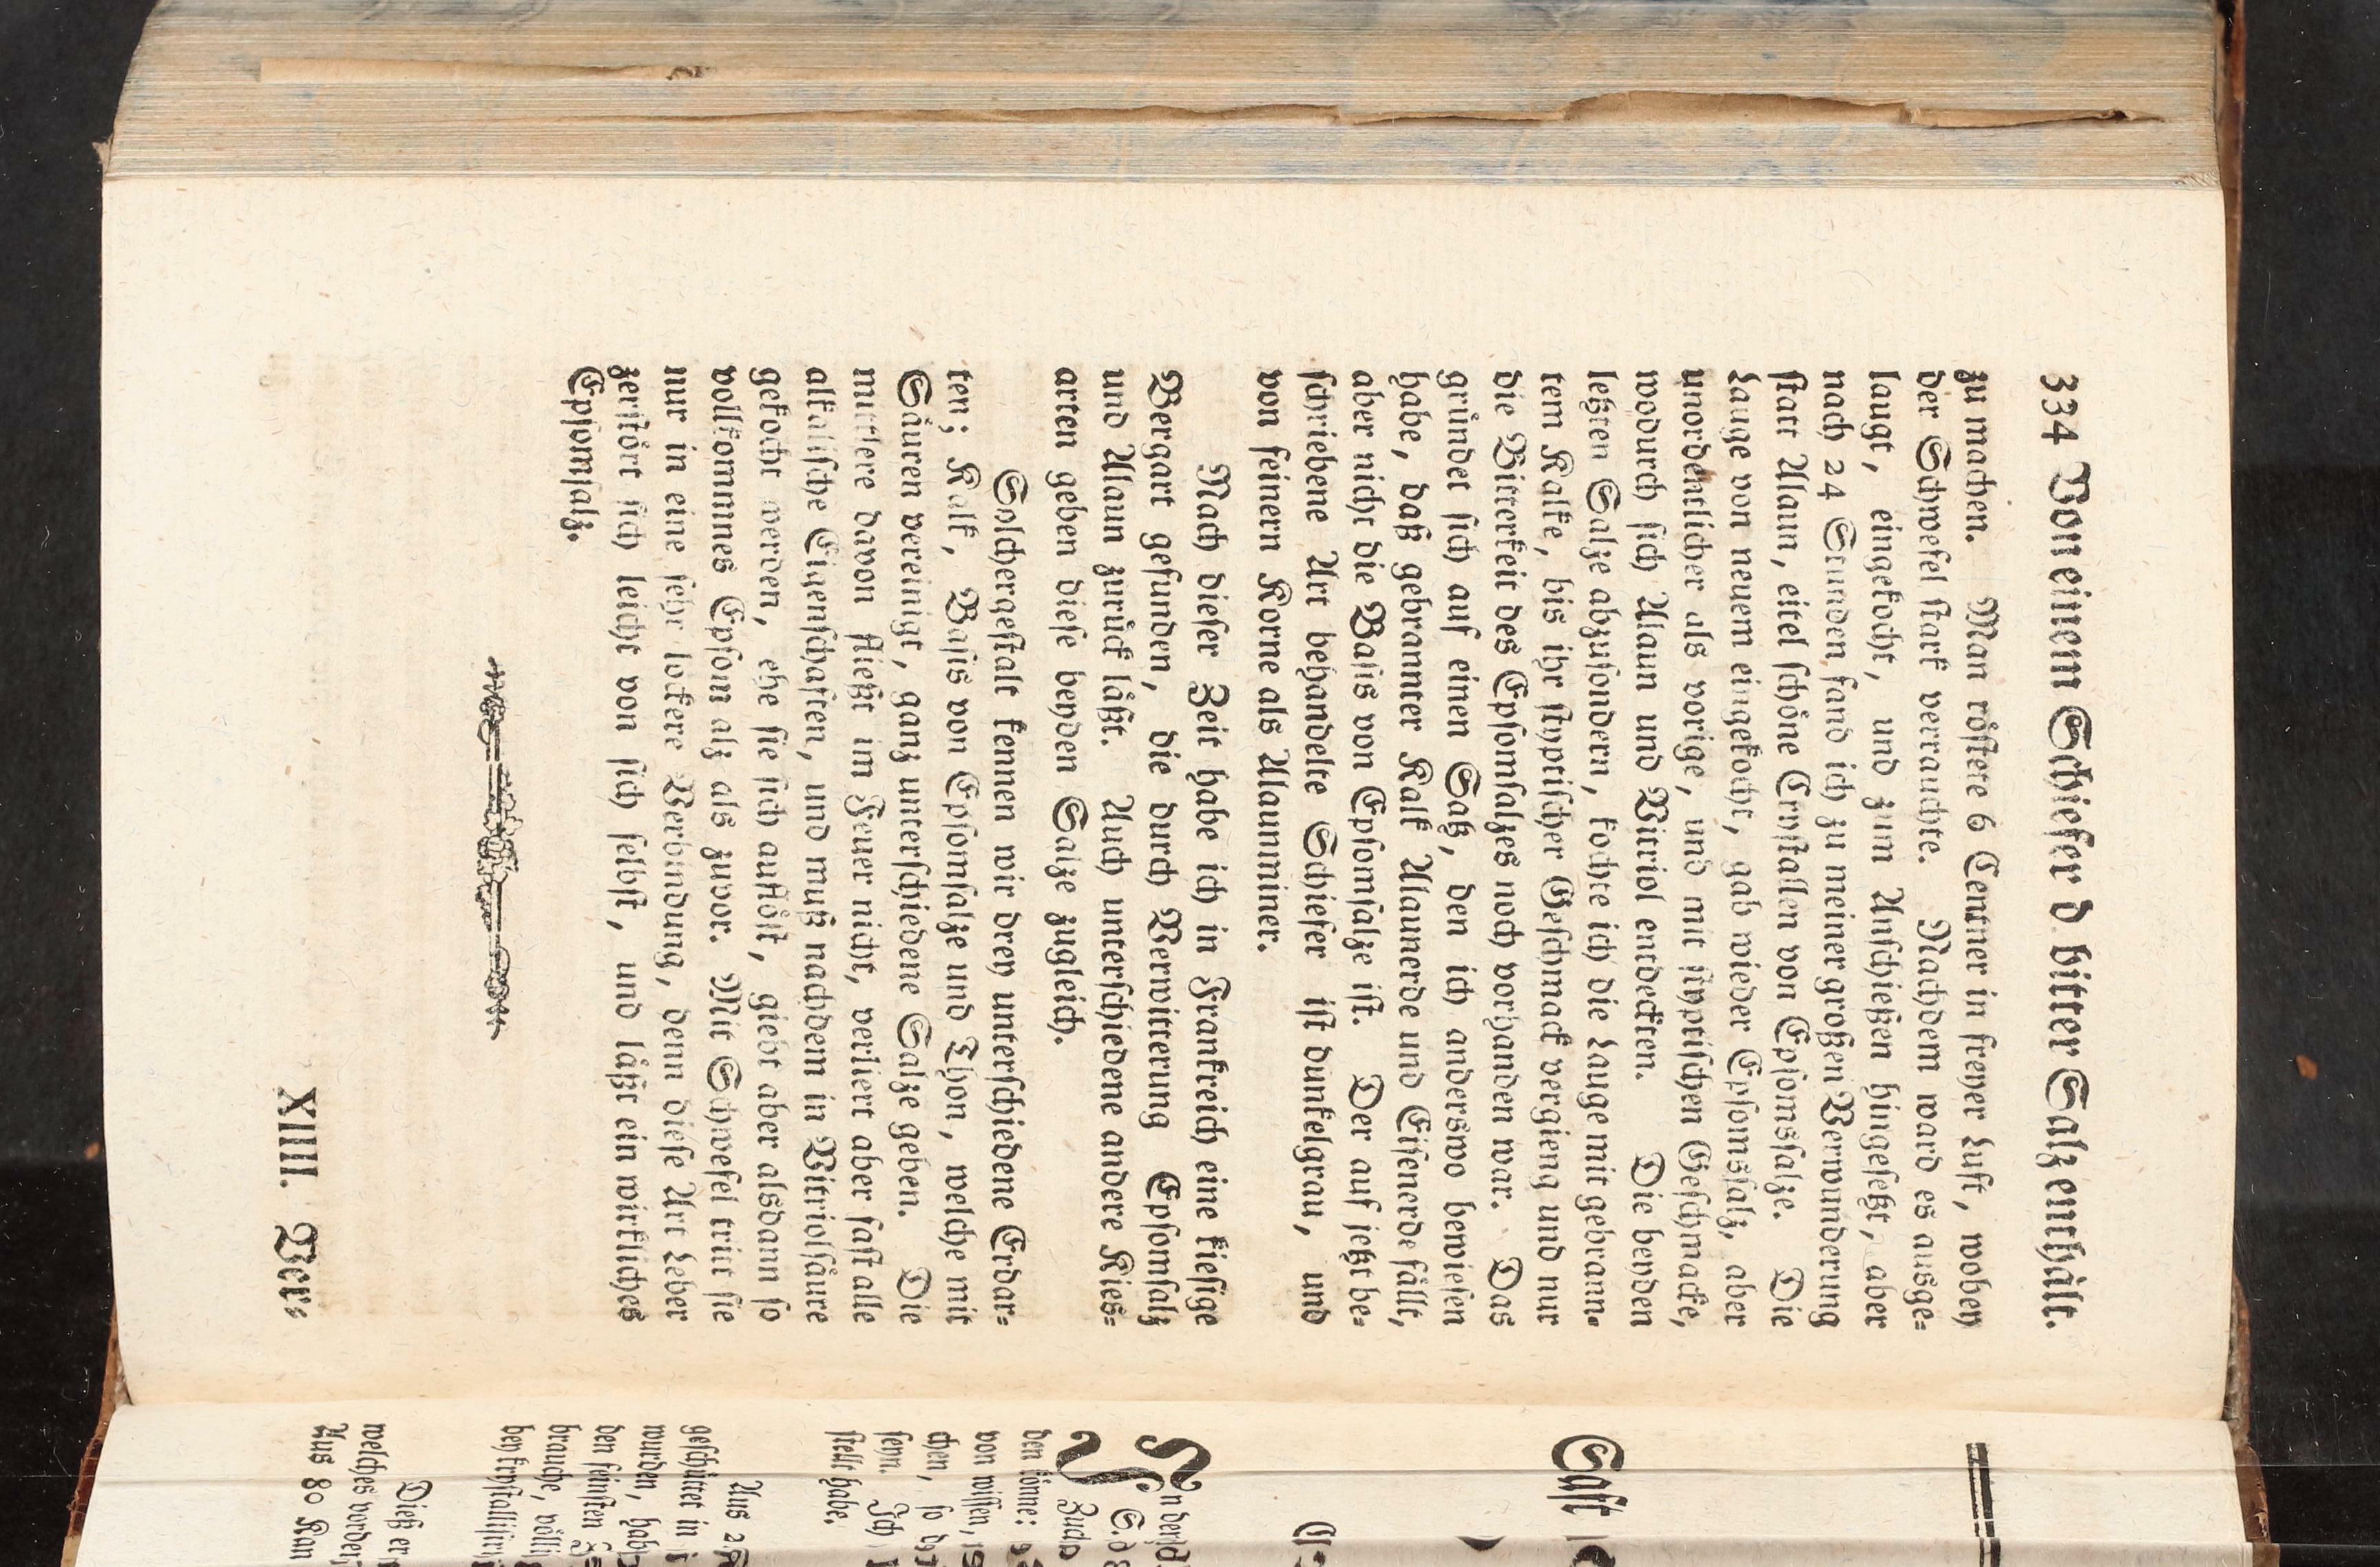 334 Von einem Schiefer d. bitter Salz enthält.
zu machen. Man röstete 6 Centner in freyer Luft, wobey
der Schwefel stark verrauchte. Nachdem ward es ausge=
laugt, eingekocht, und zum Anschießen hingesetzt, aber
nach 24 Stunden fand ich zu meiner großen Verwunderung
statt Alaun, eitel schöne Crystallen von Epsomssalze. Die
Lauge von neuem eingekocht, gab wieder Epsomssalz, aber
unordentlicher als vorige, und mit styptischen Geschmacke,
wodurch sich Alaun und Vitriol entdeckten. Die beyden
letzten Salze abzusondern, kochte ich die Lauge mit gebrann=
tem Kalke, bis ihr styptischer Geschmack vergieng und nur
die Bitterkeit des Epsomsalzes noch vorhanden war. Das
gründet sich auf einen Satz, den ich anderswo bewiesen
habe, daß gebrannter Kalk Alaunerde und Eisenerde fällt,
aber nicht die Basis von Epsomsalze ist. Der auf jetzt be=
schriebene Art behandelte Schiefer ist dunkelgrau, und
von feinern Korne als Alaunminer.
Nach dieser Zeit habe ich in Frankreich eine kiesige
Bergart gefunden, die durch Verwitterung Epsomsalz
und Alaun zurück läßt. Auch unterschiedene andere Kies=
arten geben diese beyden Salze zugleich.
Solchergestalt kennen wir drey unterschiedene Erdar=
ten; Kalk, Basis von Epsomsalze und Thon, welche mit
Säuren vereinigt, ganz unterschiedene Salze geben. Die
mittlere davon fließt im Feuer nicht, verliert aber fast alle
alkalische Eigenschaften, und muß nachdem in Vitriolsäure
gekocht werden, ehe sie sich auflöst, giebt aber alsdann so
vollkommnes Epsom alz als zuvor. Mit Schwefel tritt sie
nur in eine sehr lockere Verbindung, denn diese Art Leber
zerstört sich leicht von sich selbst, und läßt ein wirkliches
Epsomsalz.
XIIII. Ver=
Saft
n der
S. d
Zucke
den könne:
von wissen,
chen, so
seyn. Ich
stellt habe.
Aus 2
geschüttet in
wurden, hab
den feinsten
brauche, völli
ben
Dieß er
welches vorder
Aus 80 Kan